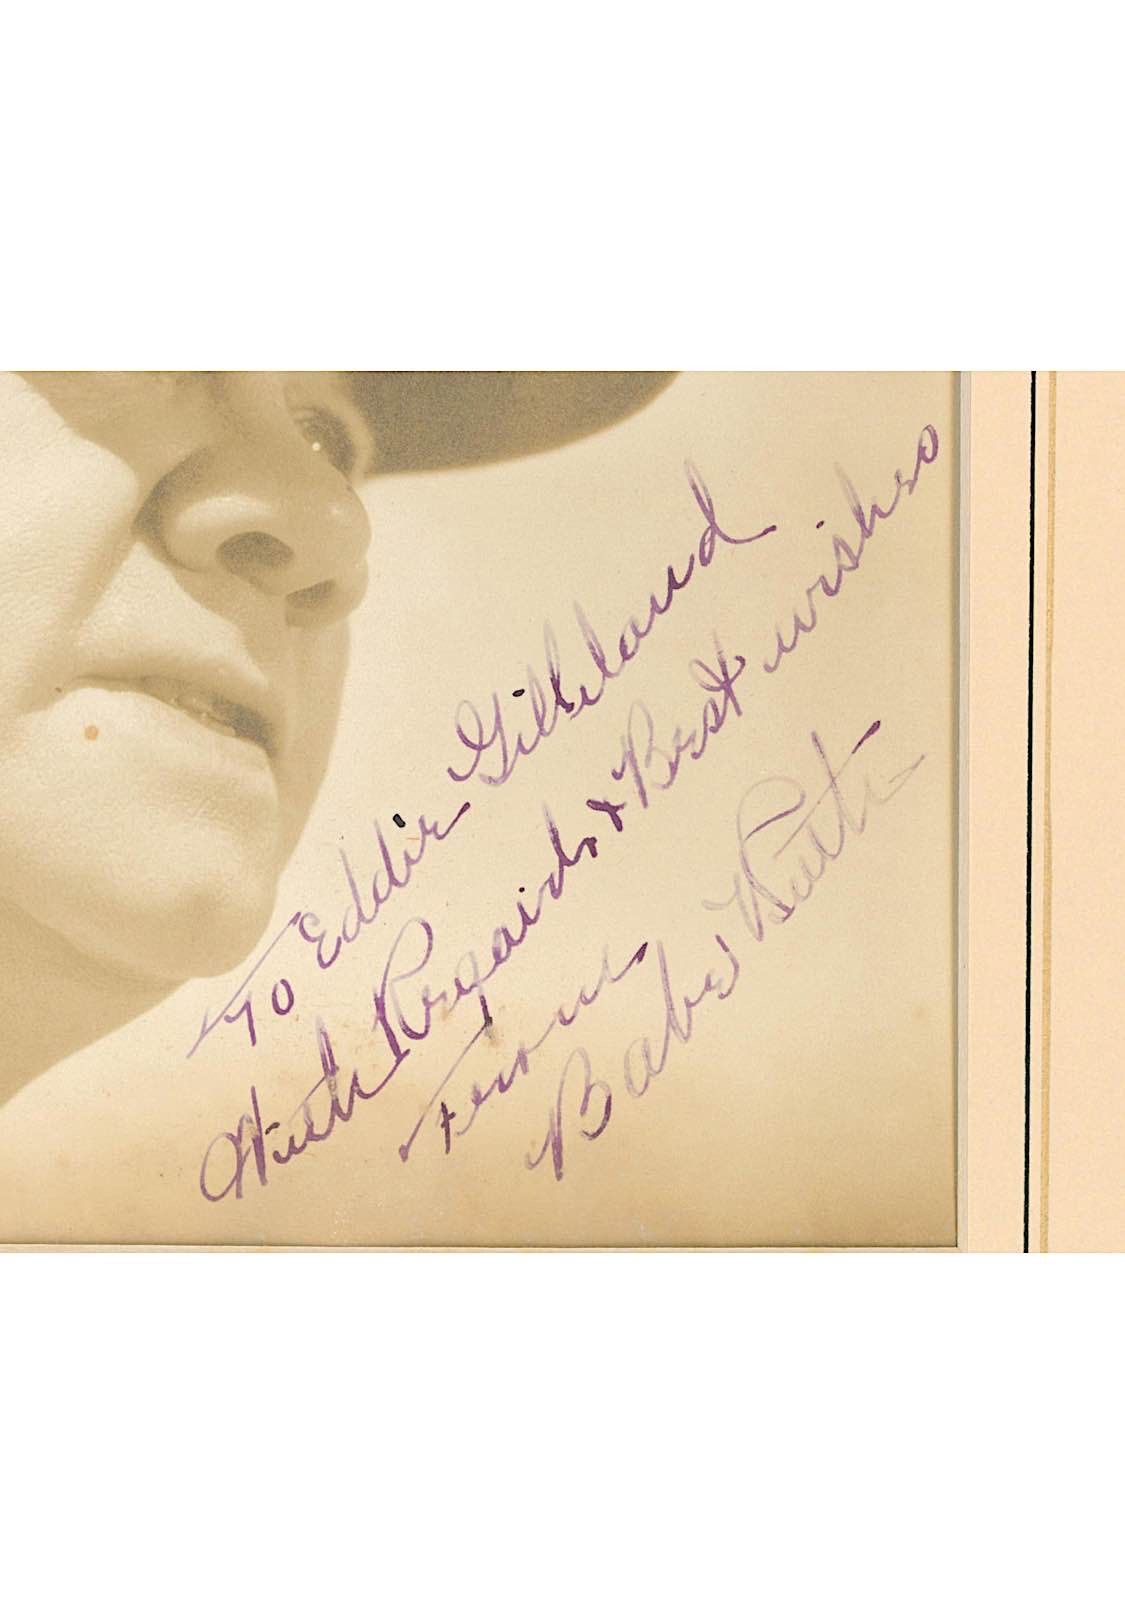 To Eddie Gilleland
With Regards & Best wishes
From
Babe Ruth